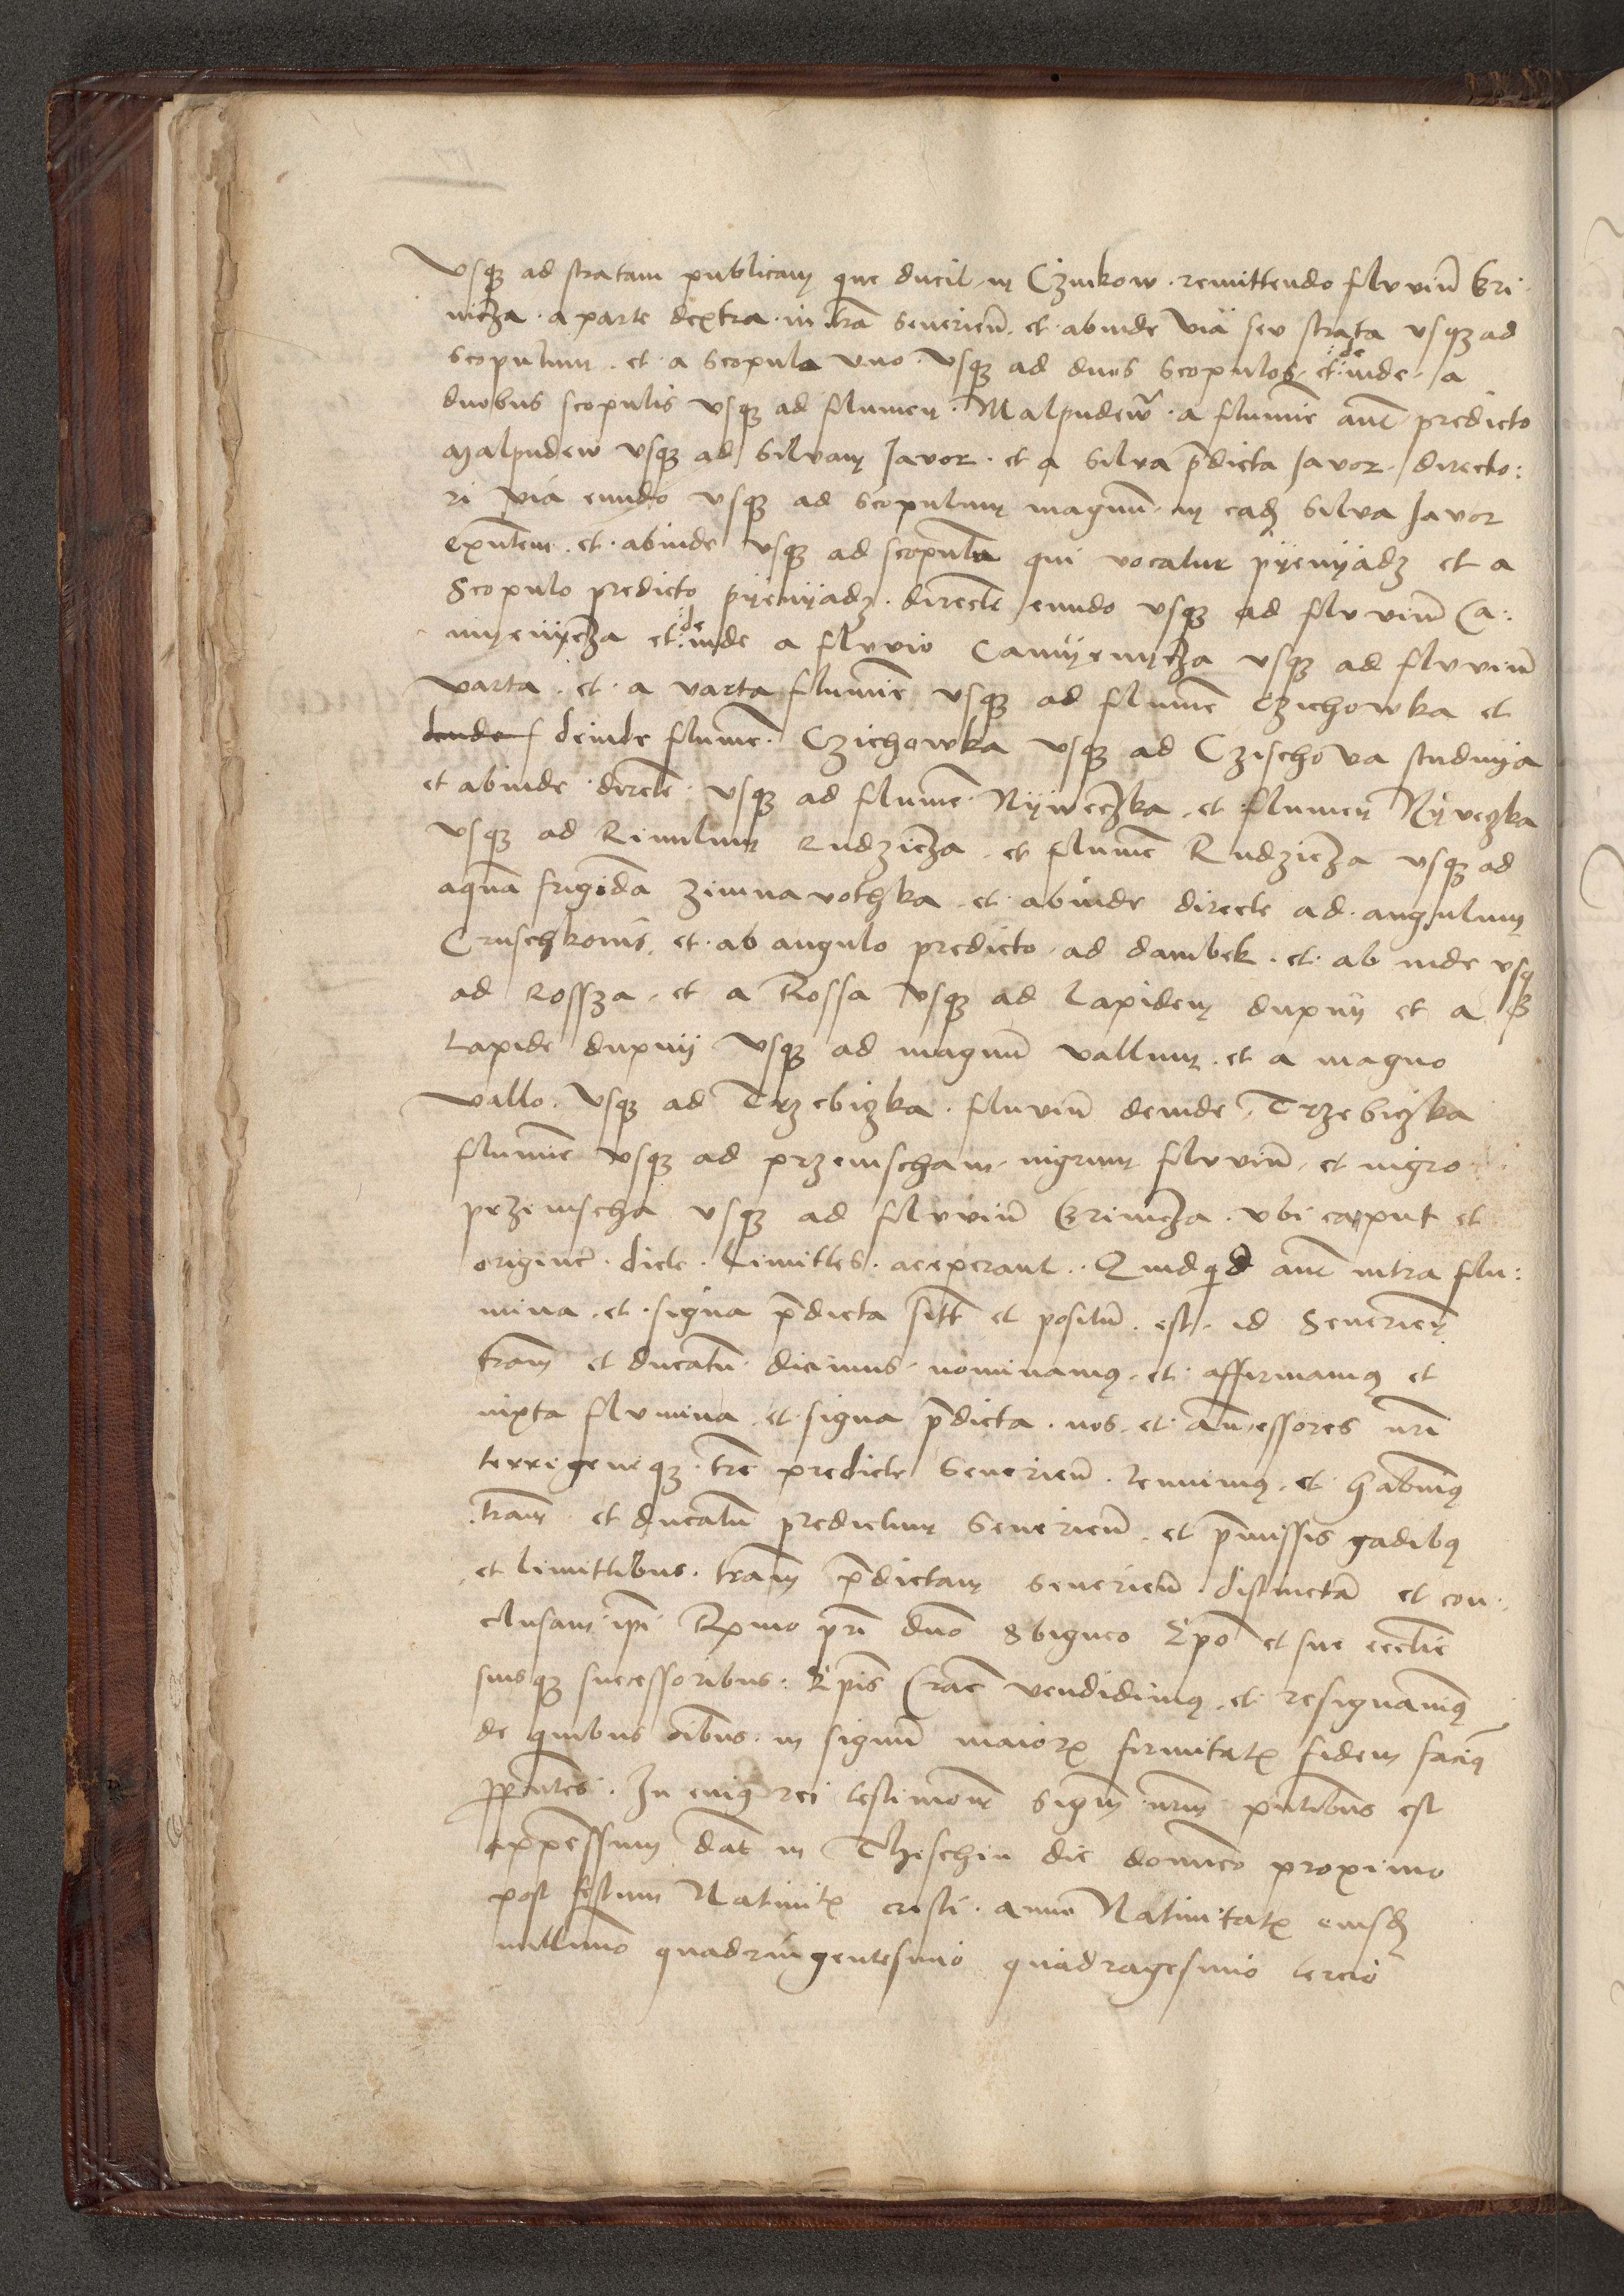 vsqz ad stratam publicam que ducit in Czinkow . remittendo fluviu͂ Bri
nicza . a parte dextra . in tra͂ Severien͂ . et . abinde via seu strata vsqz ad
scopulum . et . a scopula vno . vsqz ad duos scopulos . et :de: inde . a
duobus scopulis vsqz ad flumen . Malpudew . a flumi͂e aut͂ predicto
Malpudew vsqz ad silvam Javor . et a silva p͂dicta Javor . directo:
ri via eundo vsqz ad scopulum magnu͂ . in ead silva Javor
exn͂tem . et . abinde vsqz ad scopulu͂ qui vocatur pÿenÿadz et a
Scopulo predicto pÿenÿadz . directe eundo vsqz ad fluviu͂ Ca:
mÿenÿcza et :de: inde a fluvio Camÿenÿcza vsqz ad fluviu͂
varta . et . a varta flumi͂e vsqz ad flume͂ Czichowka et
deinde flume͂ . Czichowka vsqz ad Czischova studnÿa
et abinde . directe . vsqz ad flume͂ . Nÿweczka . et . flumen Nÿveczka
vsqz ad Rivulum Rudzicza . et flume͂ Rudzicza vsqz ad
aqua͂ frigida͂ zimna vothka . et . abinde directe ad . angulum
Cruschkonis . et . ab angulo predicto . ad dambek . et . ab inde vsqz
ad Rossza . et a Rossa vsqz ad Lapidem dupnÿ et a
Lapide dupnÿ vsqz ad magnu͂ vallum . et a magno
vallo . vsqz ad Trzebiczka . fluviu͂ deinde . Trzebiczka
flumi͂e vsqz ad przemscham . nigrum fluviu͂ . et nigro
przemscha vsqz ad fluviu͂ Brinicza . vbi caput et
origine͂ . dicte . Limittes . acceperant . . Quidquid aut͂ intra flu:
mina . et . signa p͂dicta sitt͂ et positu͂ . est . id Severien͂
tram͂ et ducatu͂ . dicimus . nominamus . et . affirmamus et
iuxta flumina . et . signa p͂dicta . nos . et . an͂cessores nr͂i
terrigeneqz . tr͂e predicte Severien͂ . tenuimus . et . habuimus
tram͂ . et ducatu͂ predictum Severien͂ . et p͂missis gadibus
et limittibus . tram͂ p͂dictam Severien͂ . distincta͂ et con
clusam ip͂i Rx͂mo pr͂i dn͂o Sbigneo Ep͂o et sue ecclie͂
suisqz successoribus . Ep͂is Crac͂ vendidimus . et . resignavimus
de quibus oi͂bus . in signu͂ maioris firmitatis fidem facimus
pn͂tes . In cuius rei testimoni͂u͂ Sigm͂ nr͂m pn͂tibus est
appe͂ssum Dat͂ in Theschin die dominico proximo
post festum Nativitatis cristi . anno Nativitatis eiusd
millimo͂ quadringentesimo quadragesimo tercio